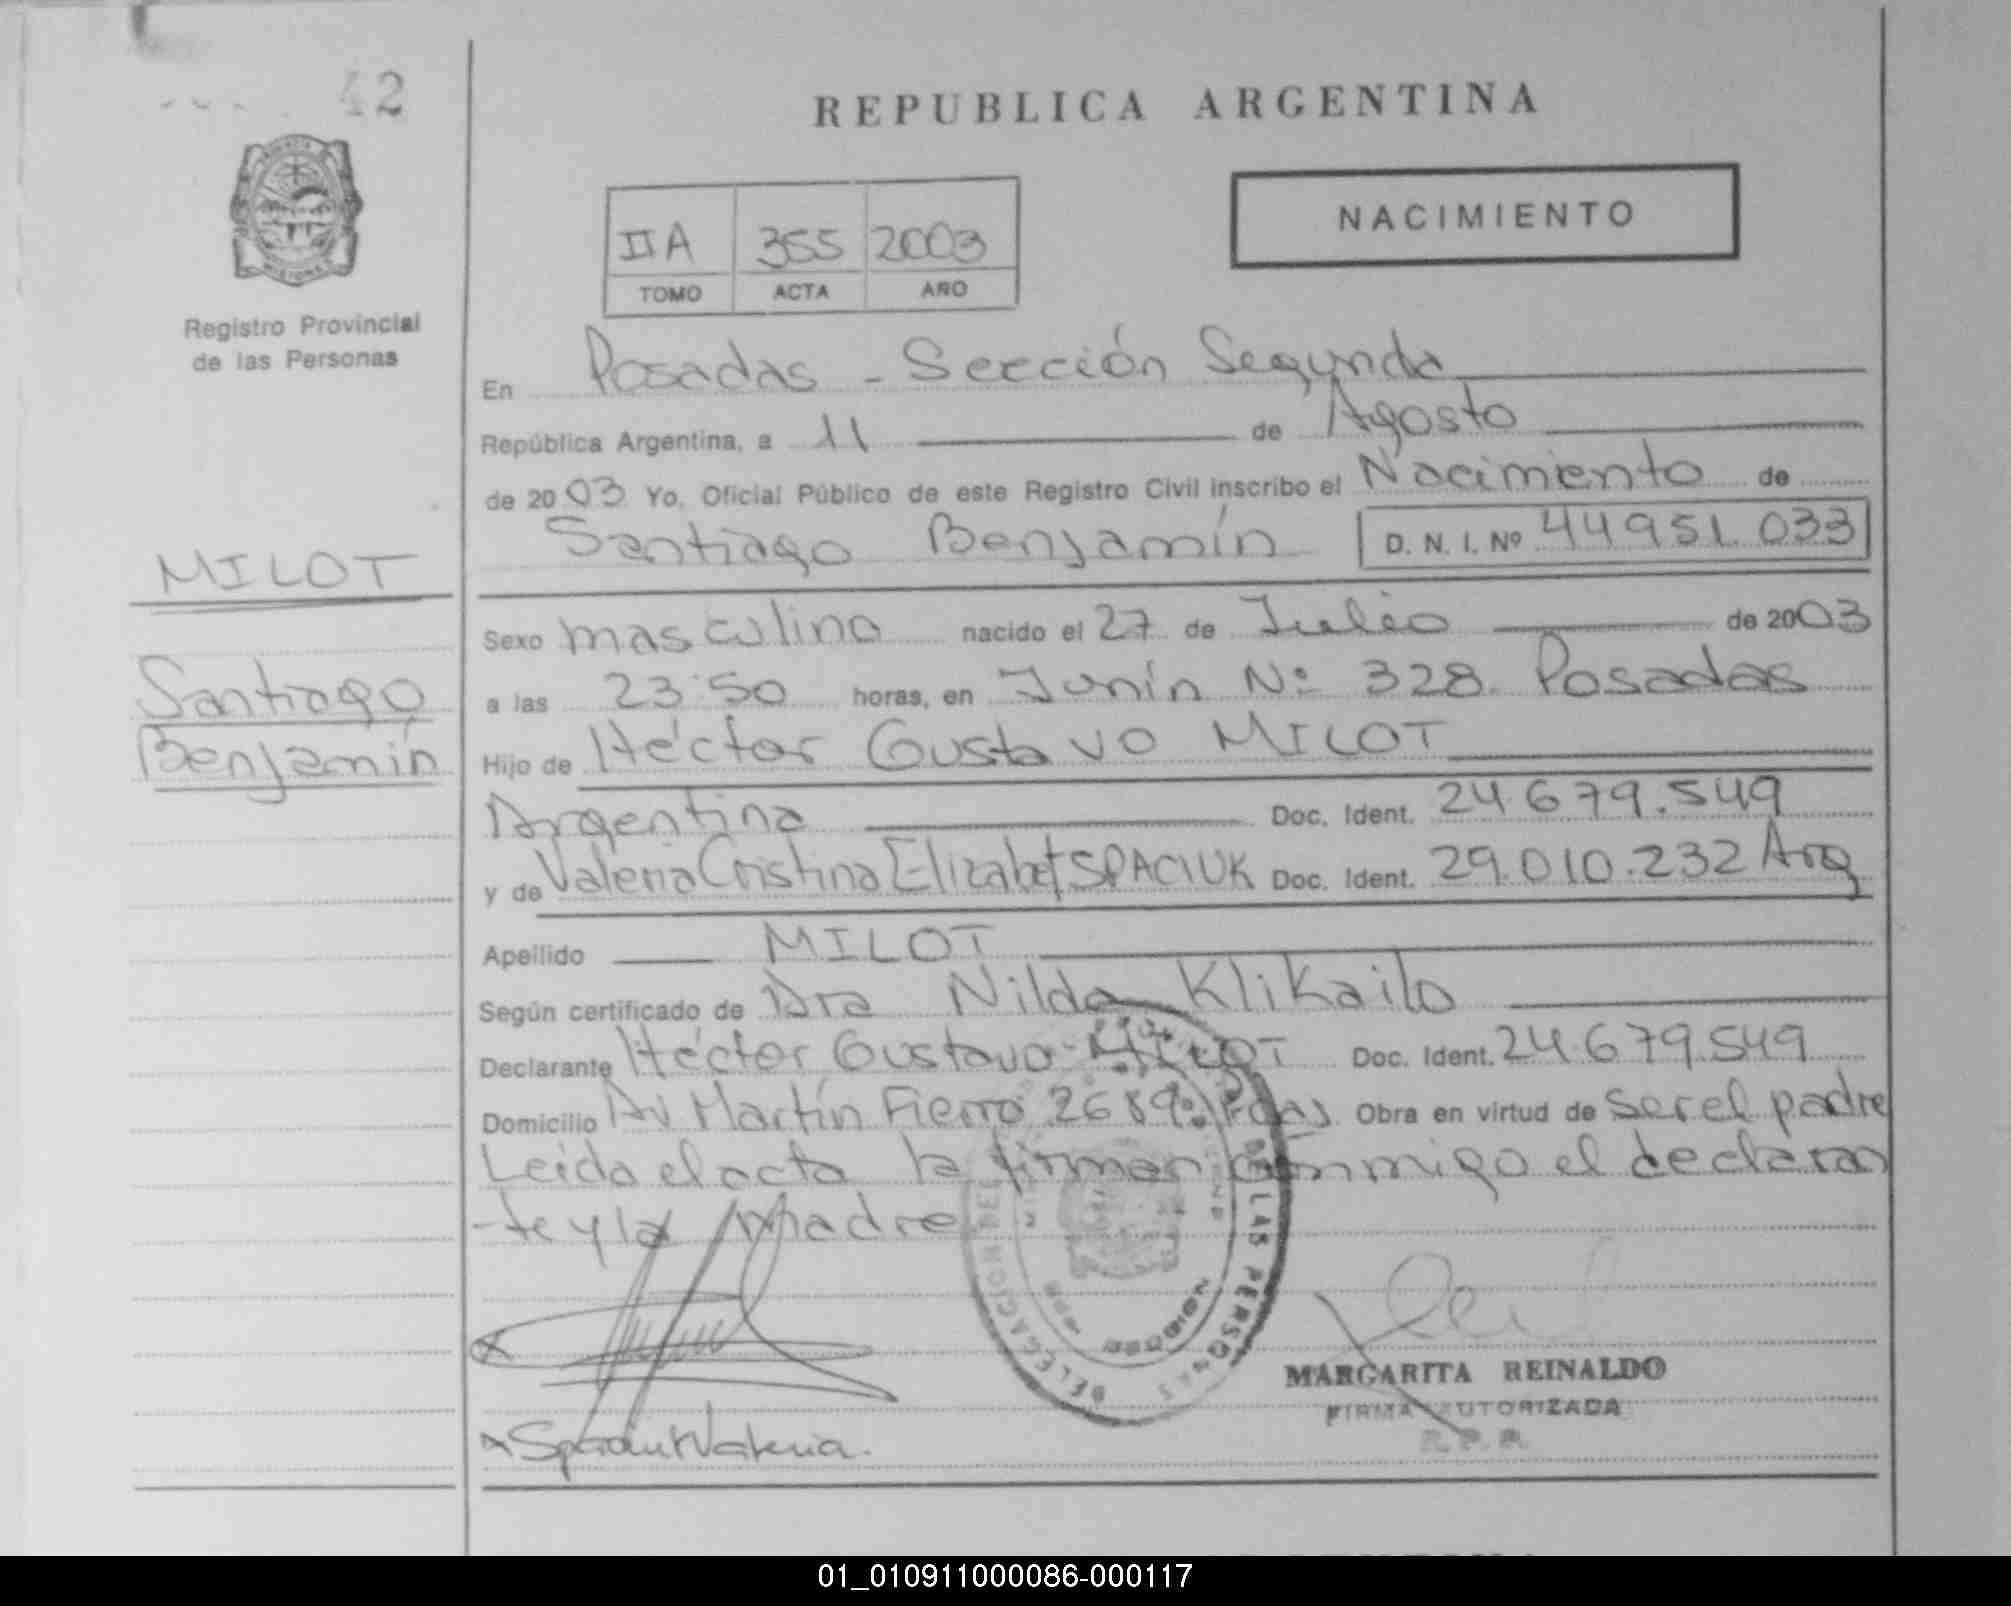 42
REPUBLICA ARGENTINA
NACIMIENTO
IIA 355 2003
TOMO ACTA AÑO
Registro Provincial
de las Personas
En Posadas - Sección Segunda
República Argentina, a 11 de Agosto
de 2003 Yo, Oficial Público de este Registro Civil inscribo el Nacimiento de
Santiago Benjamín D. N. I. Nº 44951.033
MILOT
Santiago
Benjamín
Sexo masculino nacido el 27 de Julio de 2003
a las 23:50 horas, en Junín Nº 328. Posadas
Hijo de Héctor Gustavo MILOT
Argentina Doc. Ident. 24.679.549
y de Valeria Cristina Elizabet SPACIUK Doc. Ident. 29.010.232 Arg
Apellido MILOT
Según certificado de Dra Nilda Klikailo
Declarante Héctor Gustavo MILOT Doc. Ident. 24.679.549
Domicilio Av Martín Fierro 2689. Pdas Obra en virtud de ser el padre
Leída el acta la firman conmigo el declaran
-te y la madre
DELEGACION DEL DE LAS PERSONAS
MISIONES
MARGARITA REINALDO
FIRMA AUTORIZADA
R. P. P.
x Spaciuk Valeria.
01_010911000086-000117